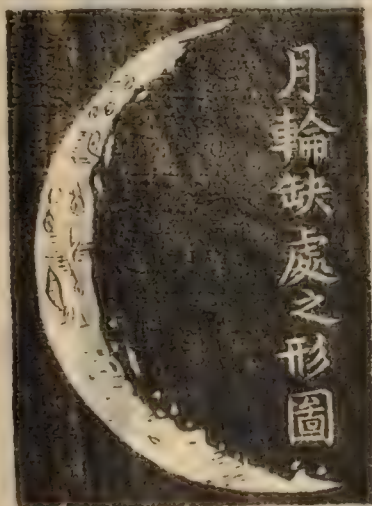 月輪缺處之形圖